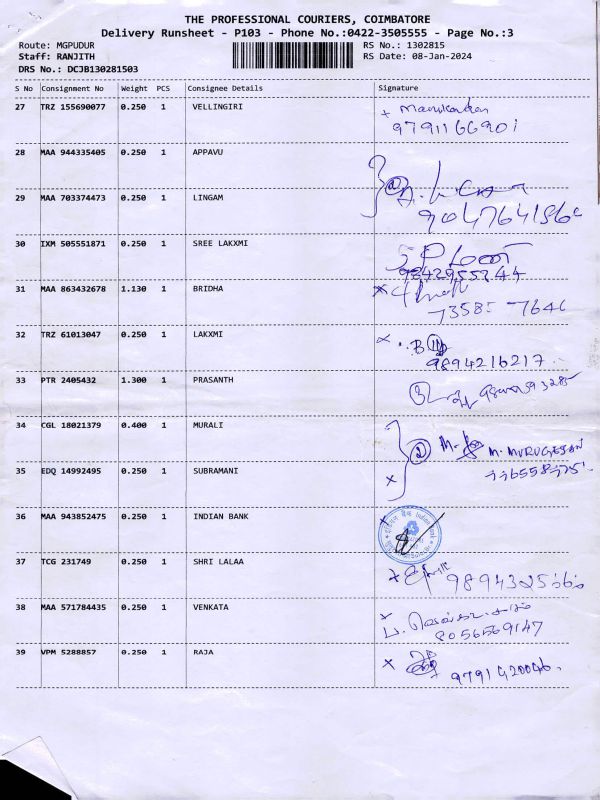 THE PROFESSIONAL COURIERS, COIMBATORE
Delivery Runsheet - P103 - Phone No.:0422-3505555 - Page No.:3
Route: MGPUDUR RS No.: 1302815
Staff: RANJITH RS Date: 08-Jan-2024
DRS No.: DCJB130281503
S No Consignment No Weight PCS Consignee Details Signature
27 TRZ 155690077 0.250 1 VELLINGIRI
28 MAA 944335405 0.250 1 APPAVU
29 MAA 703374473 0.250 1 LINGAM
30 IXM 505551871 0.250 1 SREE LAKXMI
31 MAA 863432678 1.130 1 BRIDHA
32 TRZ 61013047 0.250 1 LAKXMI
9894216217
33 PTR 2405432 1.300 1 PRASANTH
34 CGL 18021379 0.400 1 MURALI M. MURUGESAN
35 EDQ 14992495 0.250 1 SUBRAMANI
36 MAA 943852475 0.250 1 INDIAN BANK
37 TCG 231749 0.250 1 SHRI LALAA
38 MAA 571784435 0.250 1 VENKATA
8056569147
39 VPM 5288857 0.250 1 RAJA
9791420046